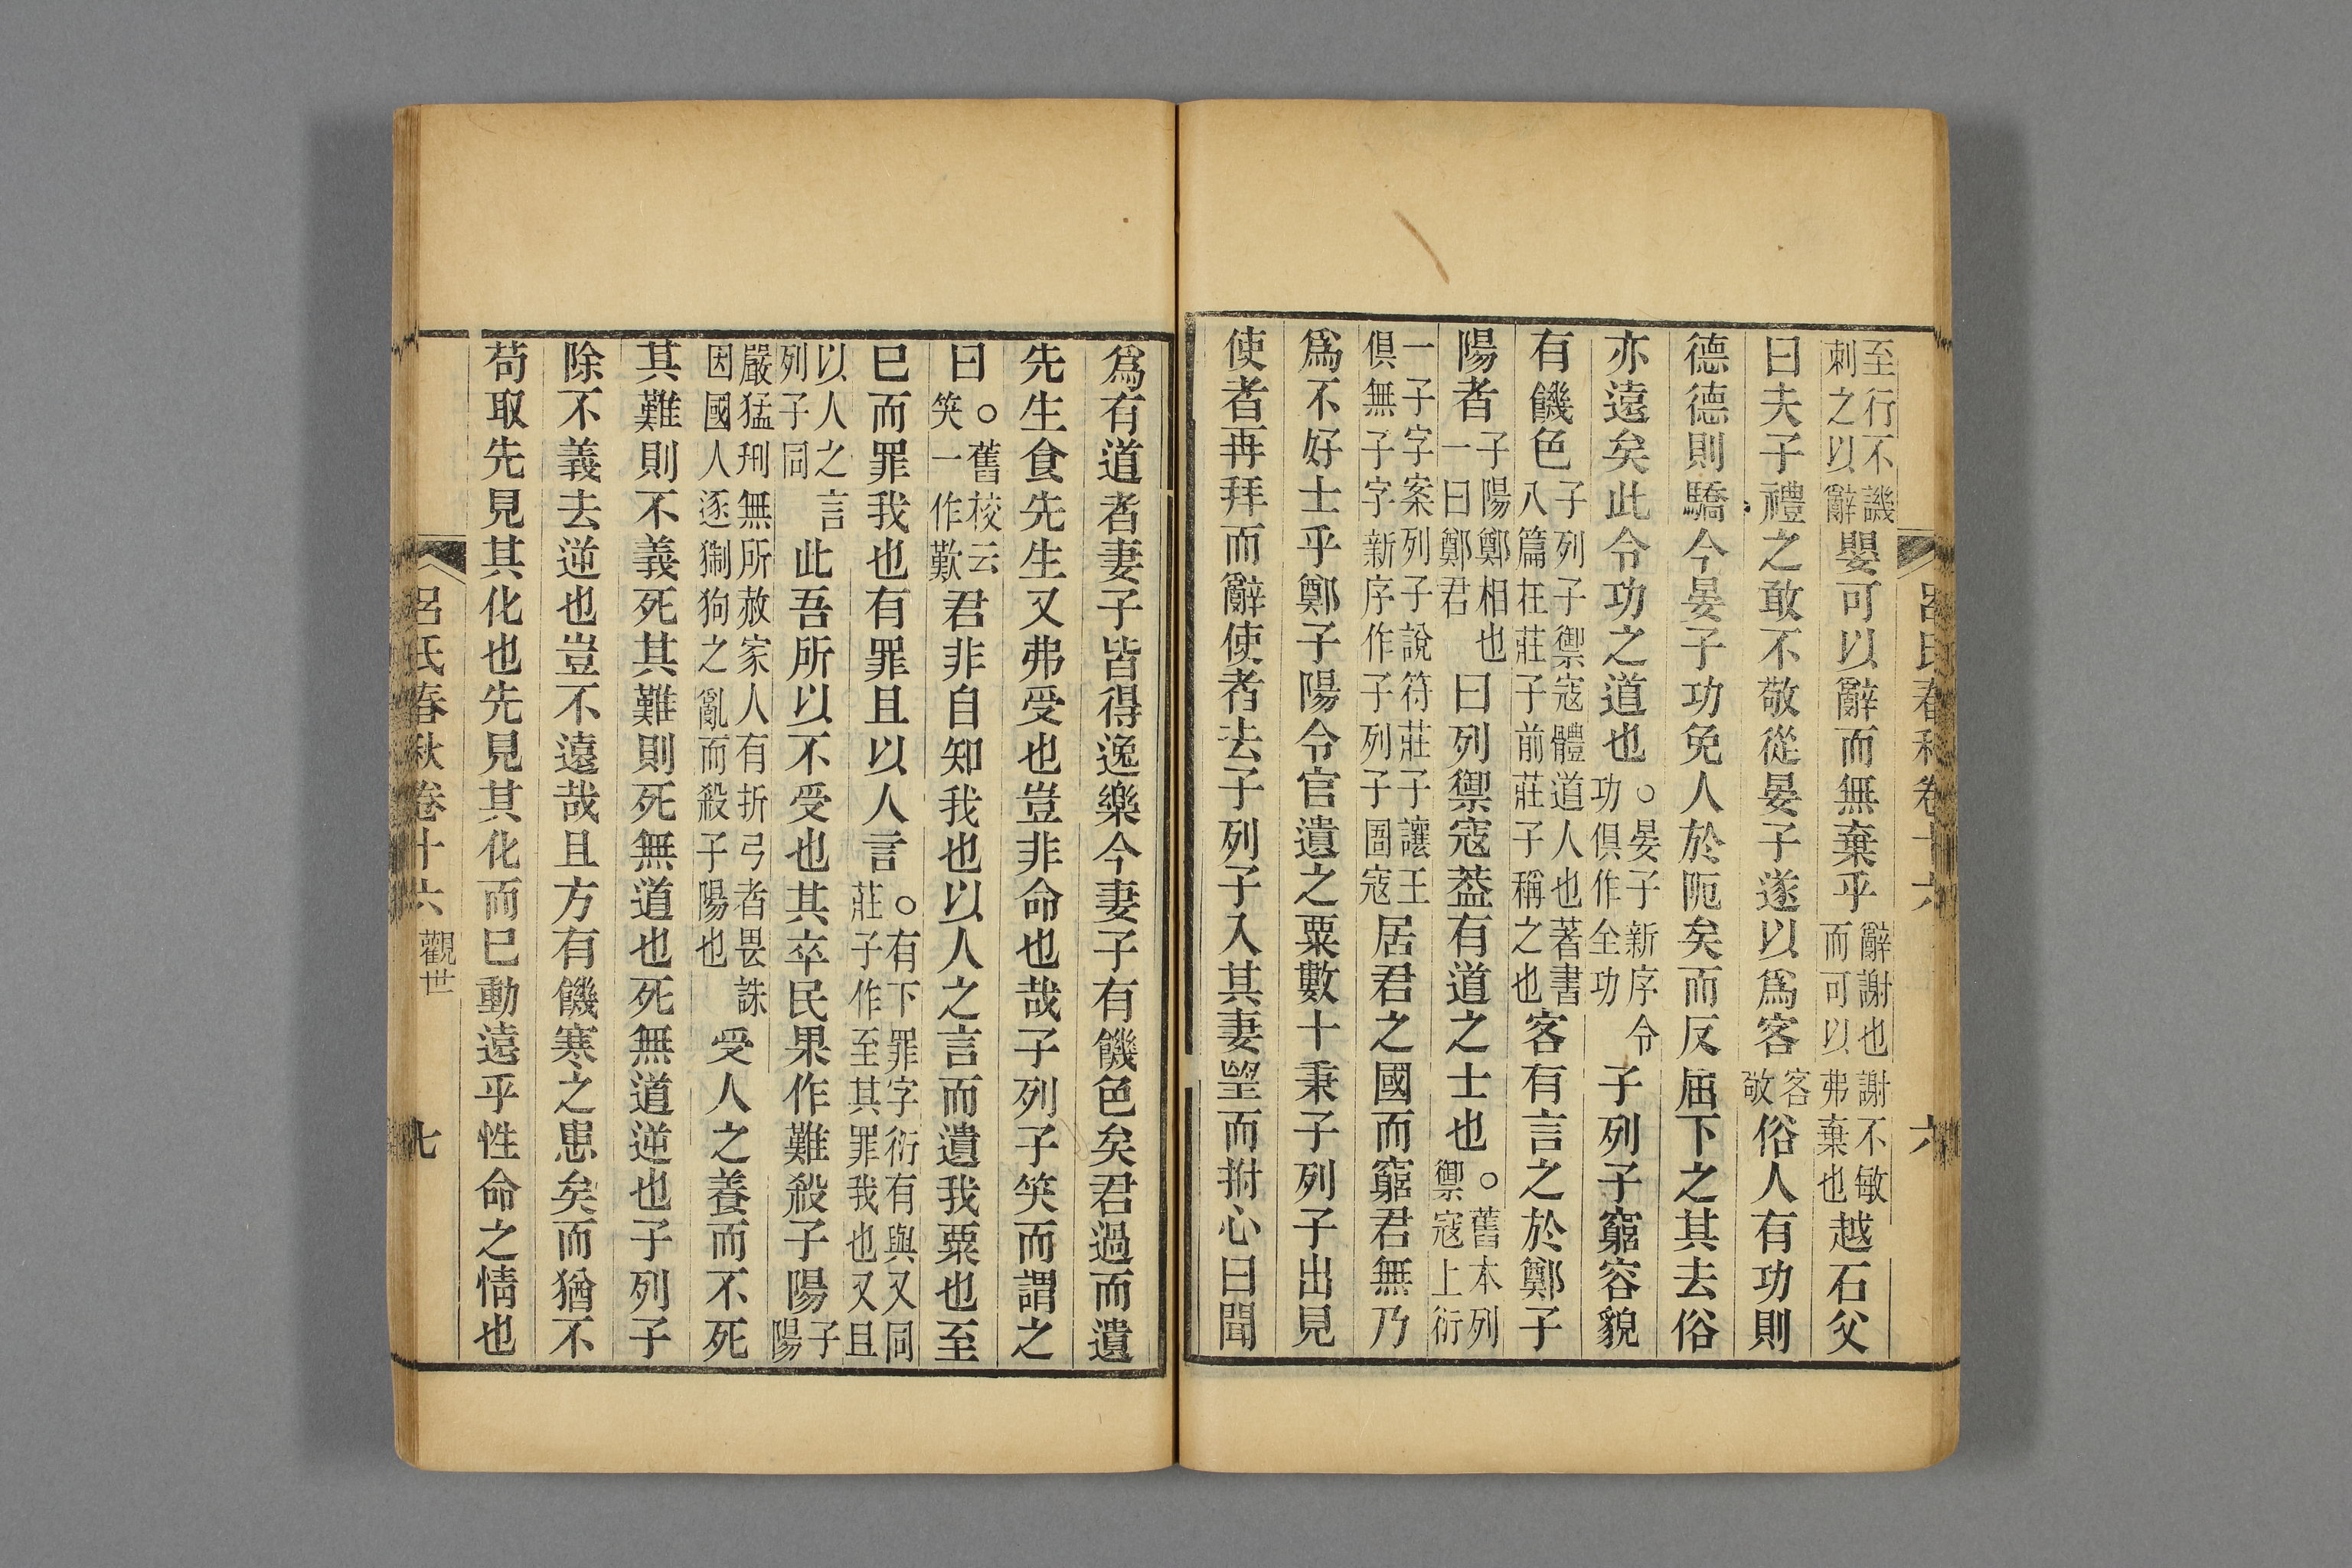 呂氏春秋卷十六　六
至行不譏刺之以辭嬰可以辭而無棄乎辭謝也謝不敏而可以弗棄也越石父
曰夫子禮之敢不敬從晏子遂以爲客客敬俗人有功則
德德則驕今晏子功免人於阨矣而反屈下之其去俗
亦遠矣此令功之道也○晏子新序令功俱作全功子列子窮容貌
有饑色子列子禦寇體道人也著書八篇在莊子前莊子稱之也客有言之於鄭子
陽者子陽鄭相也一曰鄭君曰列禦寇葢有道之士也○舊本列禦寇上衍
一子字案列子說符莊子讓王俱無子字新序作子列子圄寇居君之國而窮君無乃
爲不好士乎鄭子陽令官遺之粟數十秉子列子出見
使者再拜而辭使者去子列子入其妻望而拊心曰聞
爲有道者妻子皆得逸樂今妻子有饑色矣君過而遺
先生食先生又弗受也豈非命也哉子列子笑而謂之
曰○舊校云笑一作歎君非自知我也以人之言而遺我粟也至
已而罪我也有罪且以人言○有下罪字衍有與又同莊子作至其罪我也又且
以人之言列子同此吾所以不受也其卒民果作難殺子陽子陽
嚴猛刑無所赦家人有折弓者畏誅因國人逐猘狗之亂而殺子陽也受人之養而不死
其難則不義死其難則死無道也死無道逆也子列子
除不義去逆也豈不遠哉且方有饑寒之患矣而猶不
苟取先見其化也先見其化而已動遠乎性命之情也
呂氏春秋卷十六　觀世　七